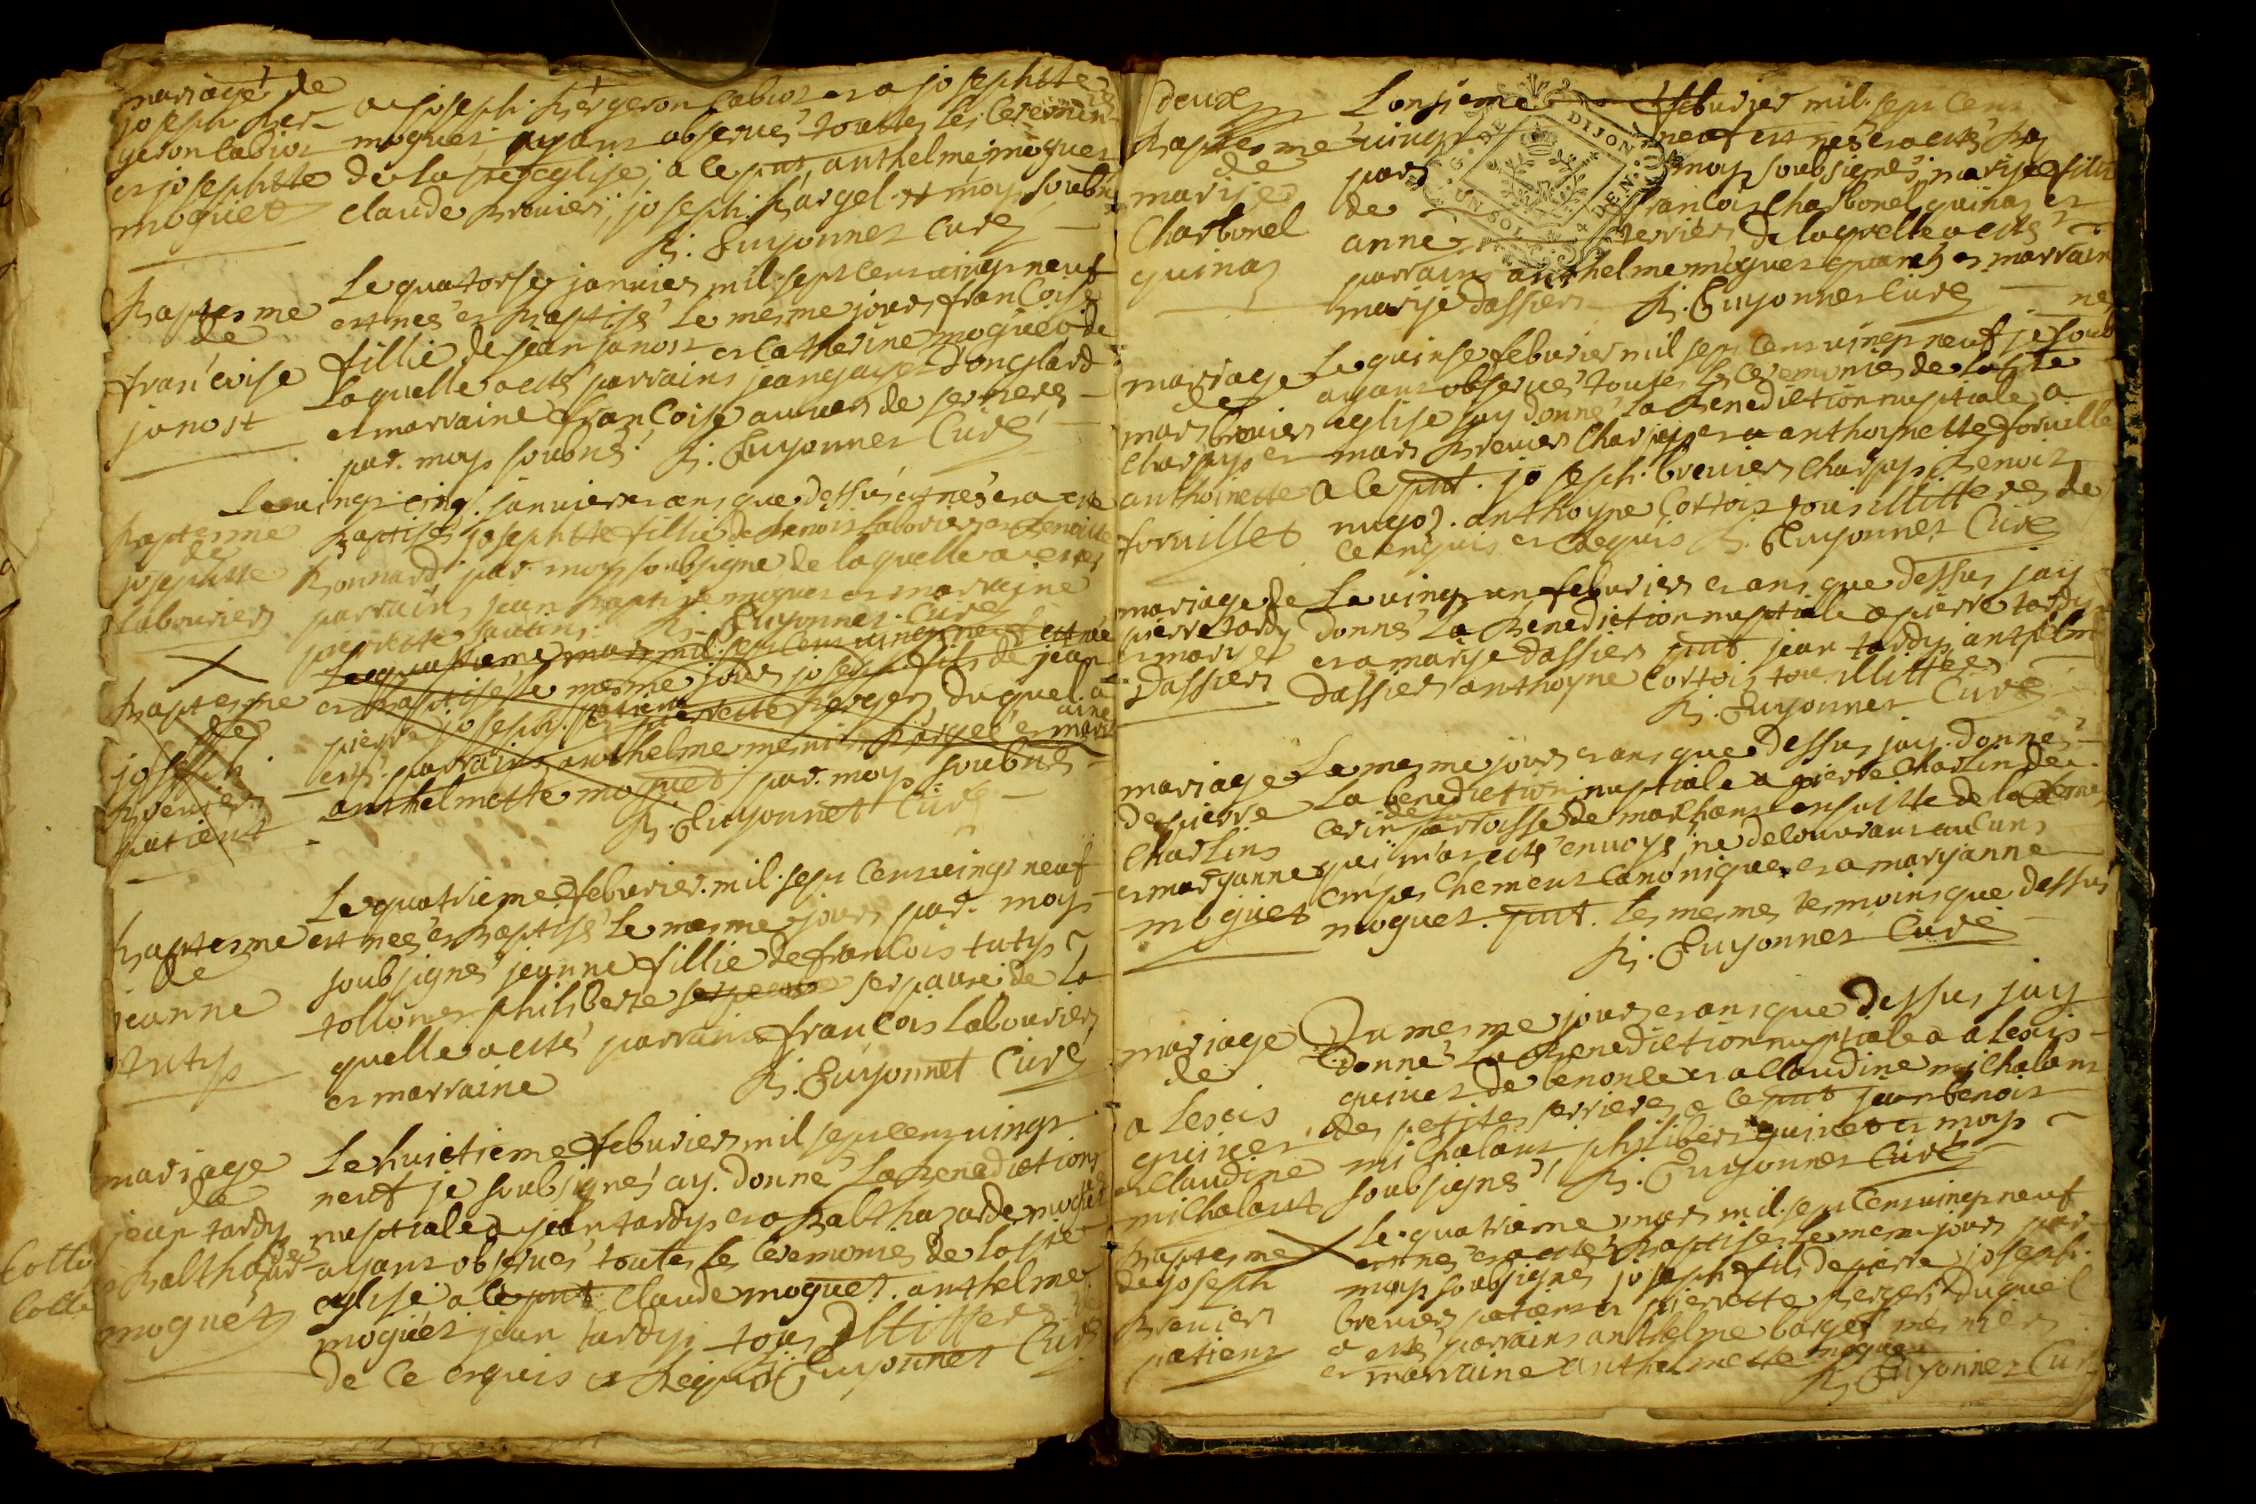 mariage de
joseph ber-
geron cabios
et josephtte
moguet
a joseph bergeron cabiot et a josephtte
moguet ayant observés touttes les ceremon-
de la ste eglise, a ce pnt, anthelme moguet
claude brevier, joseph bargel et moy soubne
B. Guyonnet Curé
baptesme
de
françoise
janost
Le quatorse janvier mil sept cent vingt neuf
est née et baptisé le mesme jours françoise
fillie de jean janost et catherine moguet de
laquelle a estés parrains jean
et marraine françoise de
par moy soubné B. Guyonnet Curé
baptesme
de
josephtte
labourier
Le vingt cinq janvier et ans que dessus est née et a esté
baptisés josephtte fillie de benoit labourier et benoitte
bonnard par moy soubsigne de laquelle a estés
parrains jean baptiste moguet et marraine
pierrette B. Guyonnet Curé
baptesme
de
joseph
brevier
patient
Le quatrieme mars mil sept cent vingt neuf est née
et baptisé le mesme jours joseph fils de jean
pierre joseph patient et pierrette berger, duquel a
estés parrains anthelme mesnier bargel et marr
aine
anthelmette moguet par moy soubné
B. Guyonnet Curé
baptesme
de
jeanne
tuty
Le quatrieme febvrier mil sept cent vingt neuf
est née et baptisé le mesme jours par moy
soubsignés jeanne fillie de francois tuty
tollion et philiberte serpaure de la
quelle a estés parrains françois labourier
et marraine B. Guyonnet Curé
mariage
de
jean tardy
et balthasarde
moguet
Le huictieme febvrier mil sept cent vingt
neuf je soubsignés ay donné la benediction
nuptiale a jean tardy et a balthazarde moguet
ayant observés toutes les ceremonies de la ste
eglise a ce pnt claude moguet, anthelme
moguet jean tardy, tous illitteres
de ce enquis et requis B. Guyonnet Curé
deux
baptesme
de
marije
Charbonel
quinat
L'onsieme febvrier mil sept cent
vingt neuf est née et a estés ba
par moy soubsignés marije fillie
de francois Charbonel quinat et
anne verrier de laquelle a estés
parrains anthelme moguet et marraine
marije dassier B. Guyonnet Curé
mariage
de
marc brevier
charpy et
anthoinette
forvillet
Le quinse febvrier mil sept cent vingt neuf je soub
ne
ayant observés toutes les ceremonies de la ste
eglise jay donné la benediction nuptiale a
marc brevier charpy et a anthoynette forville
a ce pnt. joseph brevier charpy benoit
anthoyne cottois tous illitteres de
ce enquis et requis B. Guyonnet Curé
mariage de
pierre tardy
et marije
dassier
Le vingt un febvrier et ans que dessus jay
donné la benediction nuptiale a pierre tardy
et a marije dassier pnt jean tardy anthelm
dassier anthoyne cottois tous illittere
B. Guyonnet Curé
mariage
de pierre
charlin
et maryanne
moguet
Le mesme jours et ans que dessus jay donné
la benediction nuptiale a pierre charlin de
cerin parroisse de marchamp ensuitte de la
qui m'at estés envoyé, ne decouvrant aucuns
empeschement canonique, et a maryanne
moguet. pnt. les mesmes tesmoins que dessus
B. Guyonnet Curé
mariage
de
alexis
quinet
et claudine
michalant
Du mesme jours et ans que dessus jay
donné la benediction nuptiale a alexis
quinet de benonce et a claudine michalant
des petites serrieres a ce pnt jean benoit
michalant philibert quinet et moy
soubsignés B. Guyonnet Curé
baptesme
de joseph
brevier
patient
Le quatrieme mars mil sept cent vingt neuf
est née et a estés baptisé le mesme jours par
moy soubsignés joseph fils de pierre joseph
brevier patient et pierrette berger, duquel
a esté parrains anthelme bargel mesnier
et marraine anthelmette moguet
B. Guyonnet Curé
G. DE DIJON
UN SOL 4 DEN.